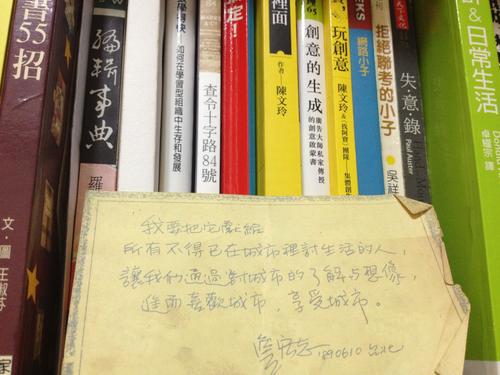 書55招
文・圖 王淑芬
編輯事典
羅
學得快
如何在學習型組織中生存和發展
查令十字路84號
定！
裡面
作者 陳文玲
創意的生成
廣告大師私家傳授
的創意啟蒙書
玩創意
陳文玲&《找阿寶》團隊
網路小子
拒絕聯考的小子
吳祥
失・意・錄
Paul Auster
&日常生活
卓耀宗 譯
我要把它獻給
所有不得已在城市裡討生活的人，
讓我們通過對城市的了解與想像，
進而喜歡城市，享受城市。
詹宏志 890610 台北